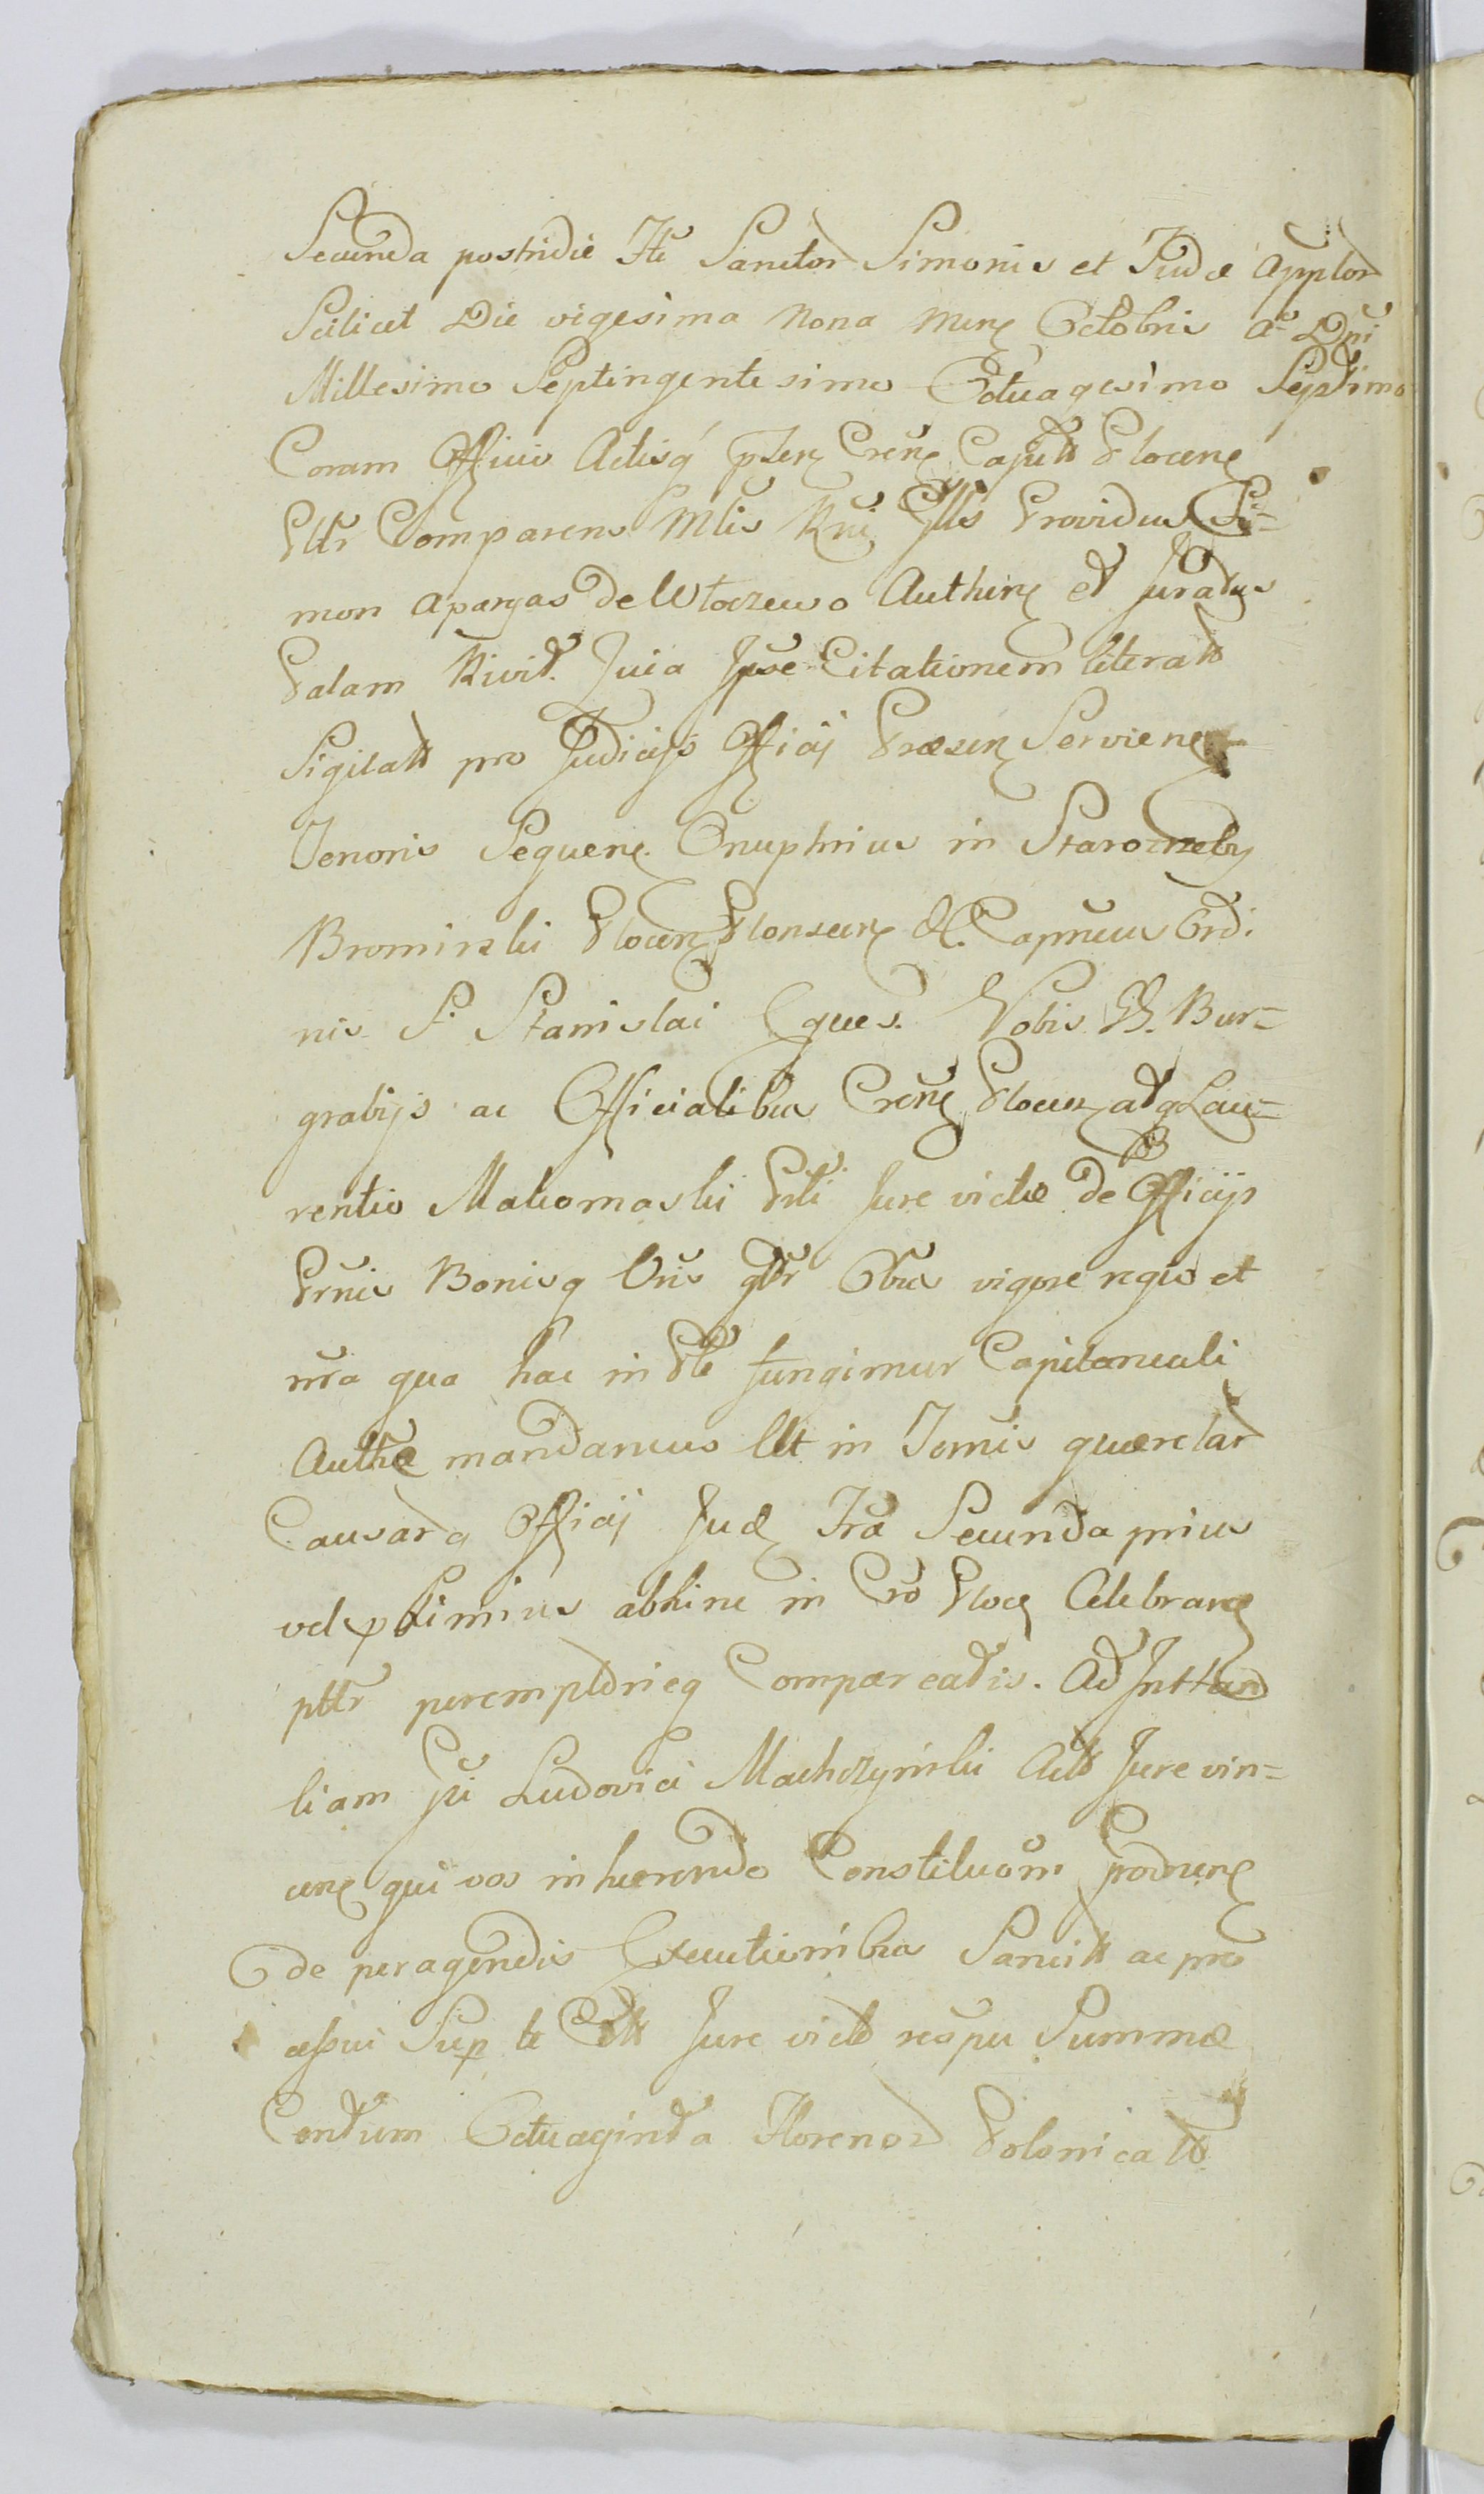 Secunda postridie Fti Sanctor Simonis et Judæ Applor
Scilicet Die vigesima Nona Mens Octobris Aō Dni
Millesimo Septingentesimo Octuagesimo Septimo
Coram Officio Actisq́ pūsen Crens Capitt Plocens
Pltr Comparens Mtis Rni Glis Providus Si-
mon aparyas de Wtoczewo Authens et Juratus
Palam Rivit. Juia Ipse Citationem literatt
Sigilatt pro Judicijs Officij Præsens Serviens
Tenoris Sequens. Onuphrius in Starozreby
Bromirski Plocens Plonscens &c. Capneus Ordi.
nis S. Stanislai Eques. Vobis GG. Bur=
grabijs ac Officialibus Crens Plocens adq Lau=
rentio Makomaski Prti Jure victæ de Officijs
Prnis Bonisq Vris gltr Obus vigore regia et
nra qua hac in Pte fungimur Capitaneali
Authæ mandamus Ut in Temis quærelar
Causarq Officij Jud Fra Secunda prius
vel pximius abhinc in Cro Plocz Celebrans
pttr peremptorieq Compareatis. Ad Inttan
tiam Gi Ludovici Machczynski Actt Jure vin=
cens qui vos inhærendo Constituom Prodnens
de peragendis Executionibus Sancitt ac pro
cessui Sup te Citt Jure victo respu Summæ
Centum Octuaginta Florenor Polonicatt